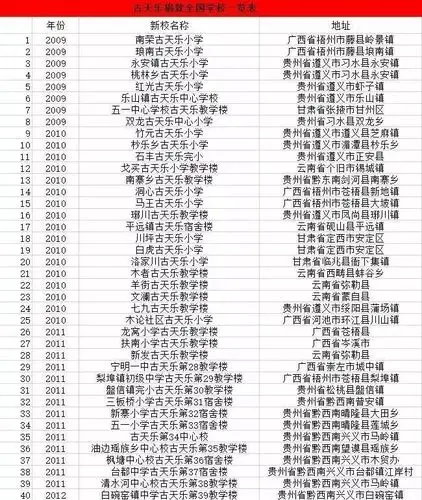 古天乐捐款全国学校一览表
年份 新校名称 地址
1 2009 南荣古天乐小学 广西省梧州市藤县岭景镇
2 2009 琅南古天乐小学 广西省梧州市藤县琅南镇
3 2009 永安镇古天乐小学 贵州省遵义市习水县永安镇
4 2009 桃林乡古天乐小学 贵州省遵义市习水县桃林镇
5 2009 红光古天乐小学 贵州省遵义市虾子镇
6 2009 乐山镇古天乐中心学校 贵州省遵义市乐山镇
7 2009 五一中心学校古天乐教学楼 甘肃省张掖市甘州区
8 2009 双龙古天乐中心小学 贵州省习水县双龙乡
9 2010 竹元古天乐小学 贵州省遵义市遵义县芝麻镇
10 2010 杪乐乡古天乐小学 贵州省遵义市湄潭县杪乐乡
11 2010 石丰古天乐完小 贵州省遵义市正安县
12 2010 戈买古天乐小学教学楼 云南省个旧市锡城镇
13 2010 南寨乡古天乐教学楼 贵州省黔东南剑河县南寨乡
14 2010 洞心古天乐小学 广西省梧州市苍梧县新地镇
15 2010 马王古天乐小学 广西省梧州市苍梧县大坡镇
16 2010 琊川古天乐教学楼 贵州省遵义市凤尚县琊川镇
17 2010 平远镇古天乐宿舍楼 云南省砚山县平远镇
18 2010 川坪古天乐小学 甘肃省定西市安定区
19 2010 白虎古天乐小学 甘肃省定西市安定区
20 2010 洛家川古天乐小学 甘肃省临兆县衙下集镇
21 2010 木者古天乐教学楼 云南省西畴县蚌谷乡
22 2010 羊街古天乐教学楼 云南省弥勒县
23 2010 文澜古天乐教学楼 云南省蒙自县
24 2010 七九古天乐教学楼 贵州省遵义市绥阳县蒲场镇
25 2010 木论社区古天乐小学 广西省河池市环江县川山镇
26 2011 龙窝小学古天乐教学楼 广西省苍梧县
27 2011 扶南小学古天乐教学楼 广西省岑溪市
28 2011 新发古天乐教学楼 云南省弥勒县
29 2011 宁明一中古天乐第28教学楼 广西省崇左市城中镇
30 2011 梨埠镇初级中学古天乐第29教学楼 广西省梧州市苍梧县梨埠镇
31 2011 盤信镇完小古天乐第30教学楼 贵州省松桃县盤信镇
32 2011 三板桥小学古天乐第31宿舍楼 贵州省黔西南普安镇
33 2011 新寨小学古天乐第32宿舍楼 贵州省黔西南晴隆县大田乡
34 2011 五一小学古天乐第33宿舍楼 贵州省黔西南晴隆县莲城乡
35 2011 古天乐第34中心校 贵州省黔西南兴义市马岭镇
36 2011 油边瑶族乡中心校古天乐第35教学楼 贵州省黔西南望谟县瑶族乡
37 2011 枫塘中心校古天乐第36宿舍楼 贵州省黔西南兴义市木贸办
38 2011 台都中学古天乐第37宿舍楼 贵州省黔西南兴义市台都镇江岸村
39 2011 清水河中心校古天乐第38教学楼 贵州省黔西南兴义市马岭镇
40 2012 白碗窑镇中学古天乐第39教学楼 贵州省黔西南兴义市白碗窑镇